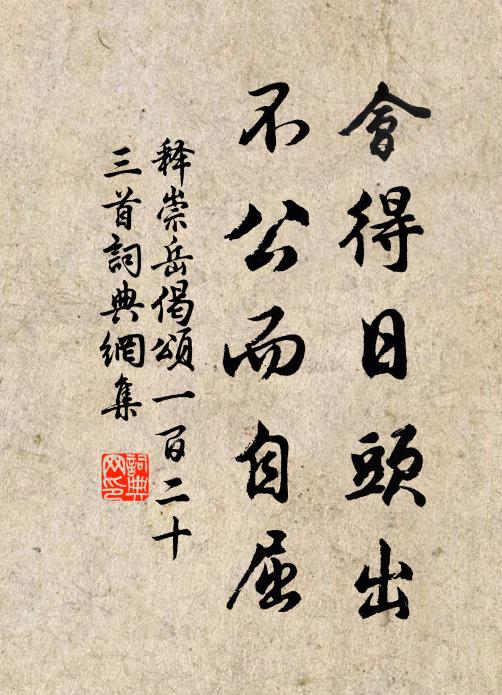 會得日頭出
不公而自屈
释崇岳偈頌一百二十
三首詞典網集
詞典
网印